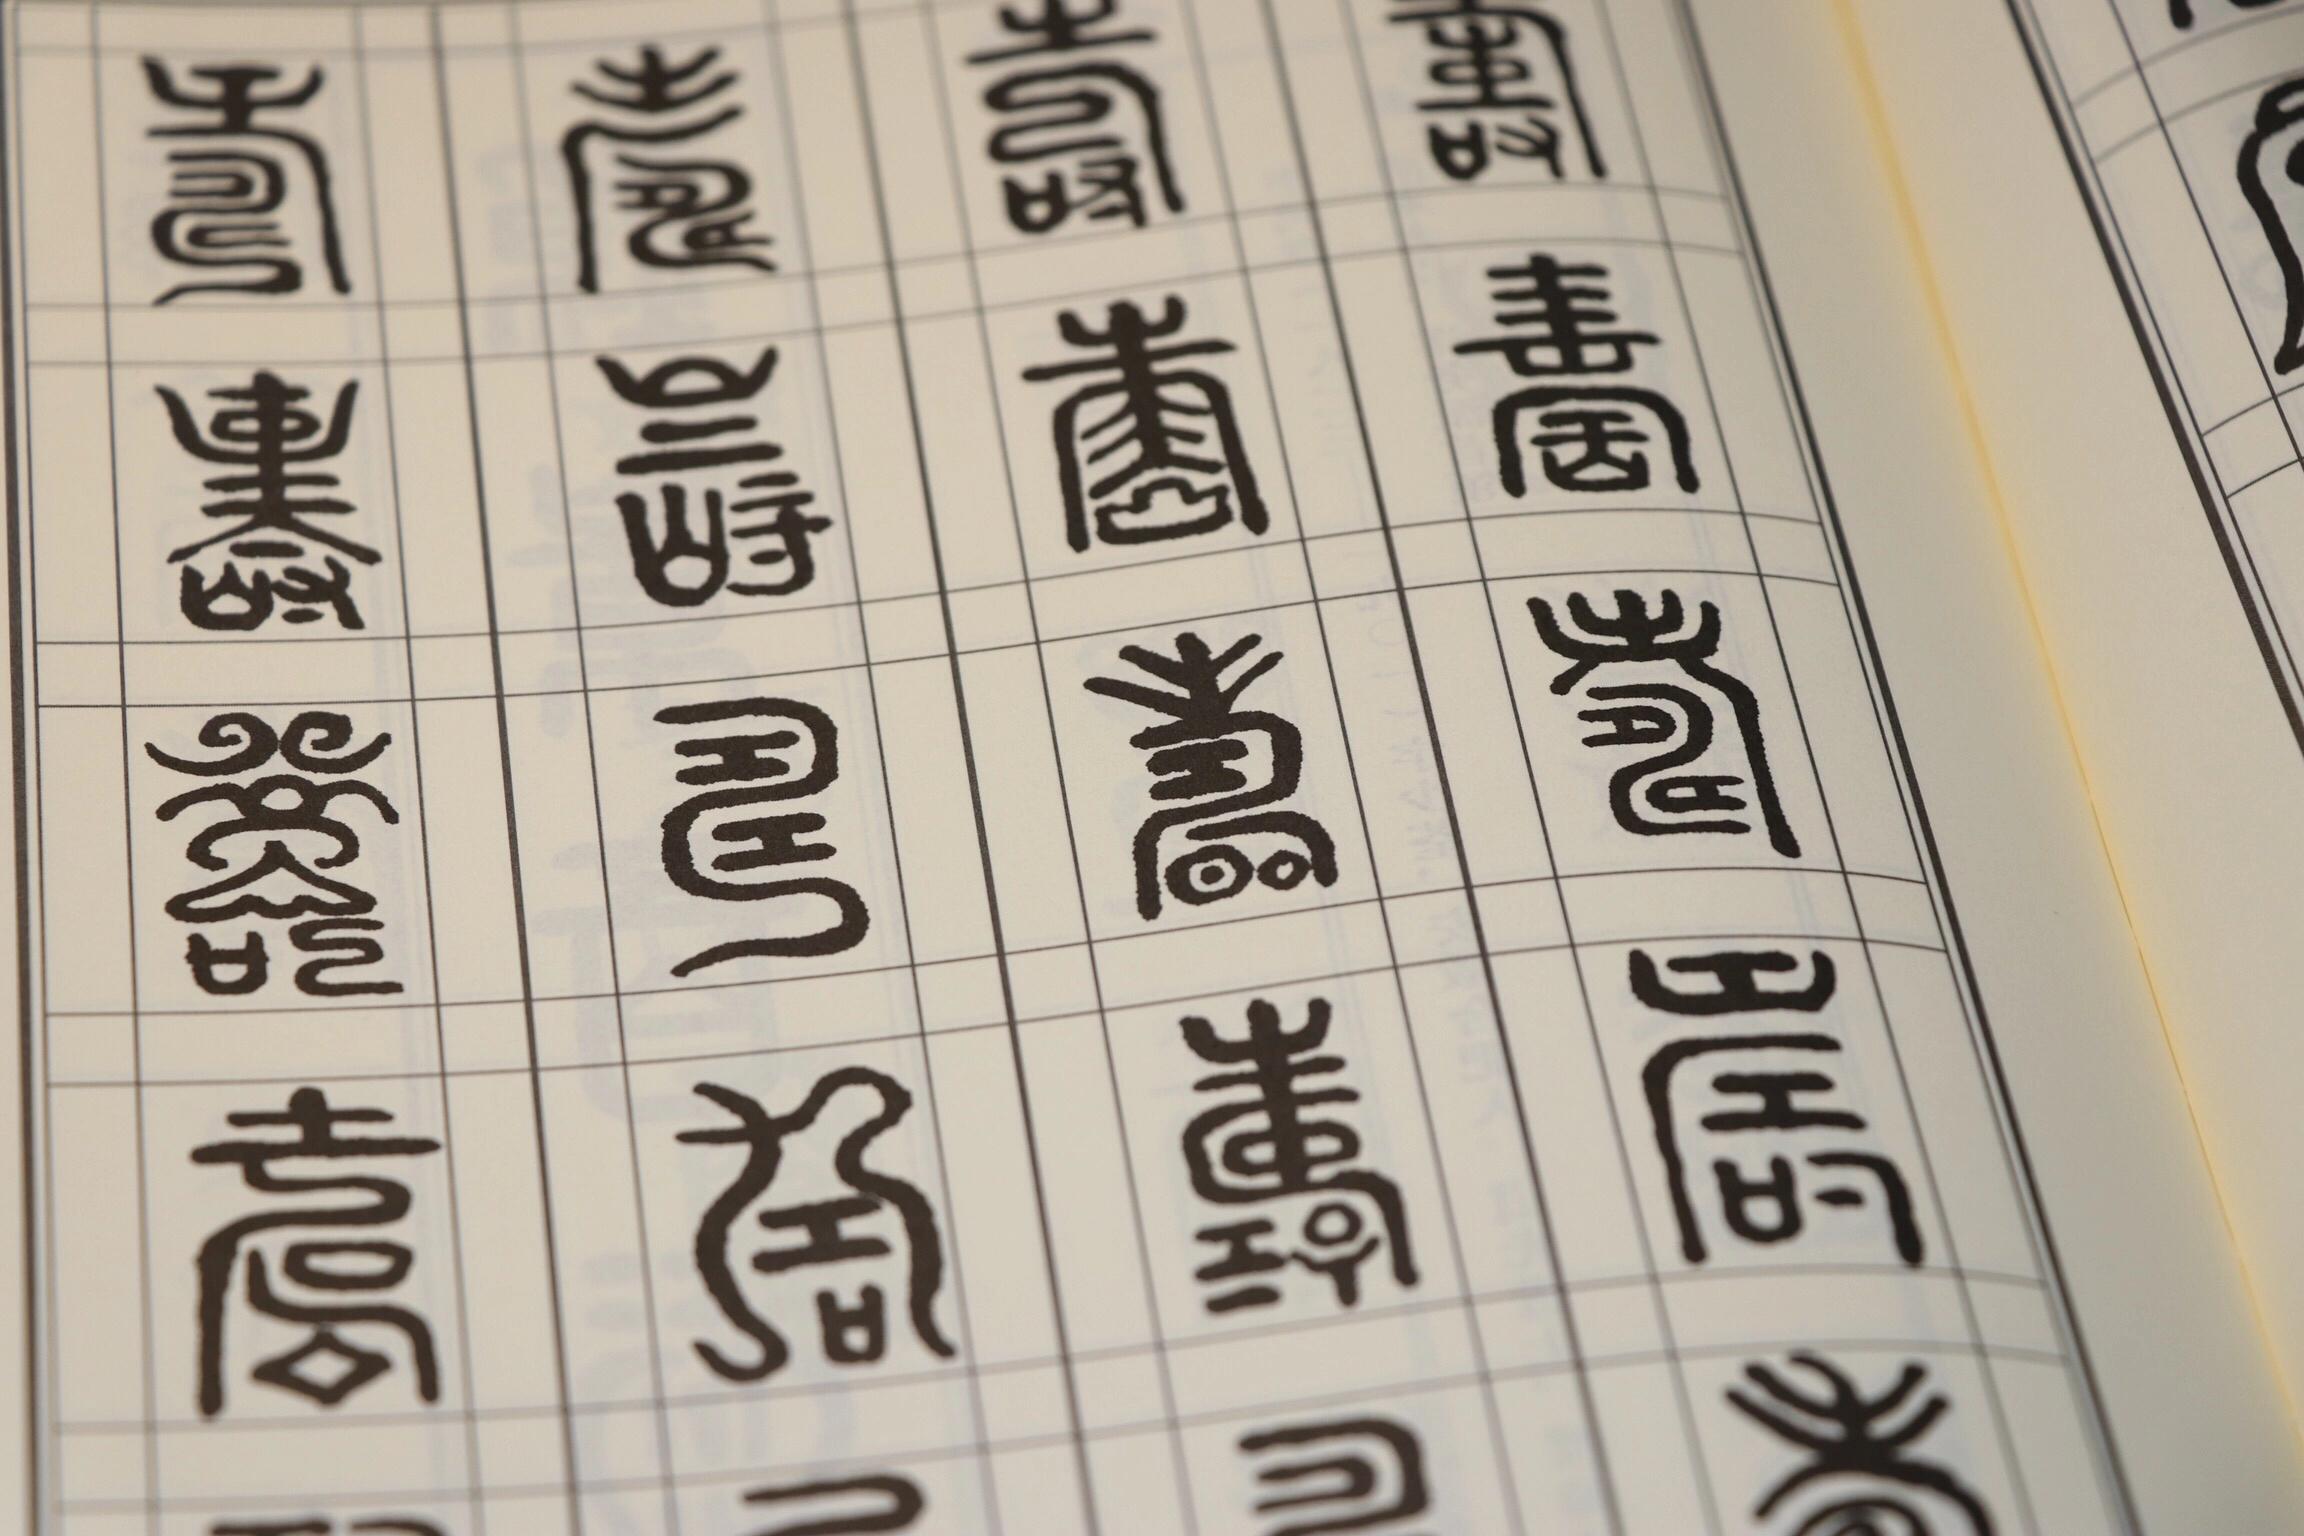 壽壽壽壽壽
壽壽壽壽
壽壽壽壽
壽壽壽壽